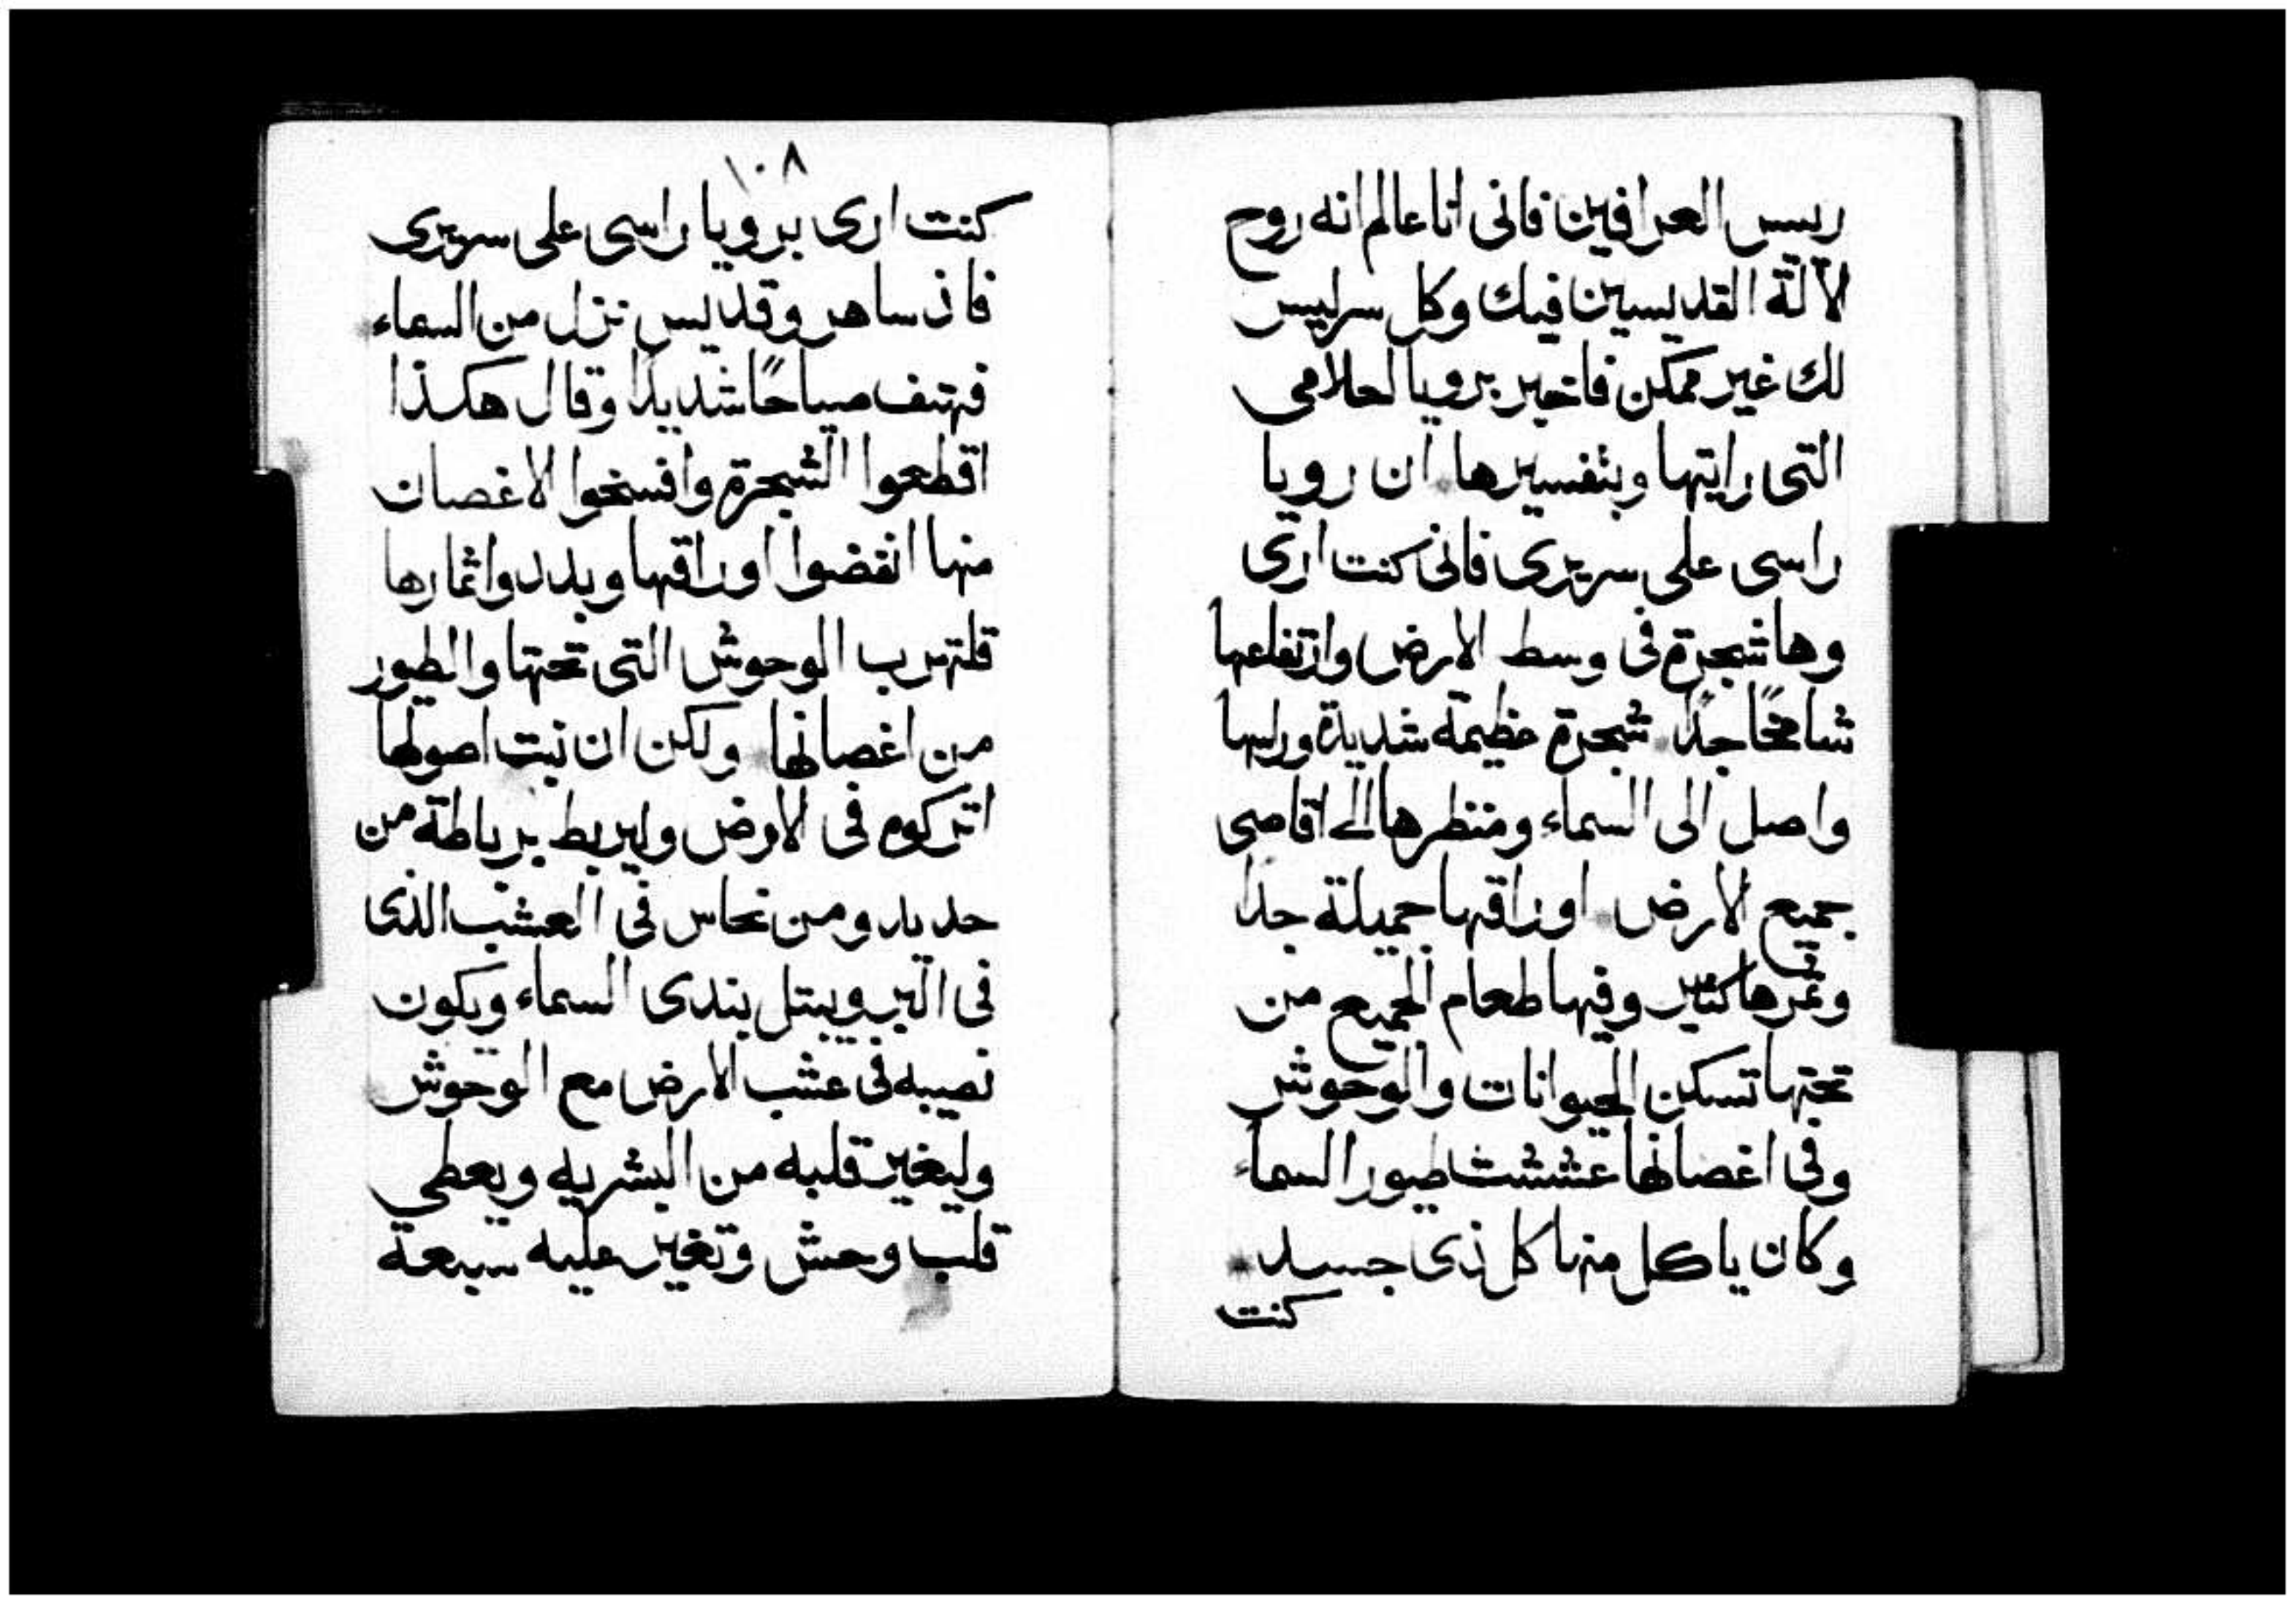 ريسس العرافين فانى انا عالم انه روح
الآلهة القديسين فيك وكل سر ليس
لك غير ممكن فاخبر برويا احلامى
التى رايتها وبتفسيرها ان رويا
راسى على سريرى فانى كنت ارى
وها شجرة فى وسط الارض وارتفاعها
شامخًا جدًا شجرة عظيمة شديدة وراسها
واصل الى السماء ومنظرها الى اقاصى
جميع الارض اوراقها جميلة جدا
وثمرها كثير وفيها طعام لجميع من
تحتها تسكن الحيوانات والوحوش
وفى اغصانها عششت طيور السماء
وكان ياكل منها كل ذى جسد
كنت
١٠٨
كنت ارى برويا راسى على سريرى
فاذ ساهر وقديس نزل من السماء
فهتف صياحًا شديدًا وقال هكذا
اقطعوا الشجرة وافسخوا الاغصان
منها انفضوا اوراقها وبددوا اثمارها
فلتهرب الوحوش التى تحتها والطيور
من اغصانها ولكن ان نبت اصولها
اتركوه فى الارض وليربط برباطة من
حديد ومن نحاس فى العشب الذى
فى البر ويبتل بندى السماء ويكون
نصيبه فى عشب الارض مع الوحوش
وليغير قلبه من البشريه ويعطى
قلب وحش وتغير عليه سبعة